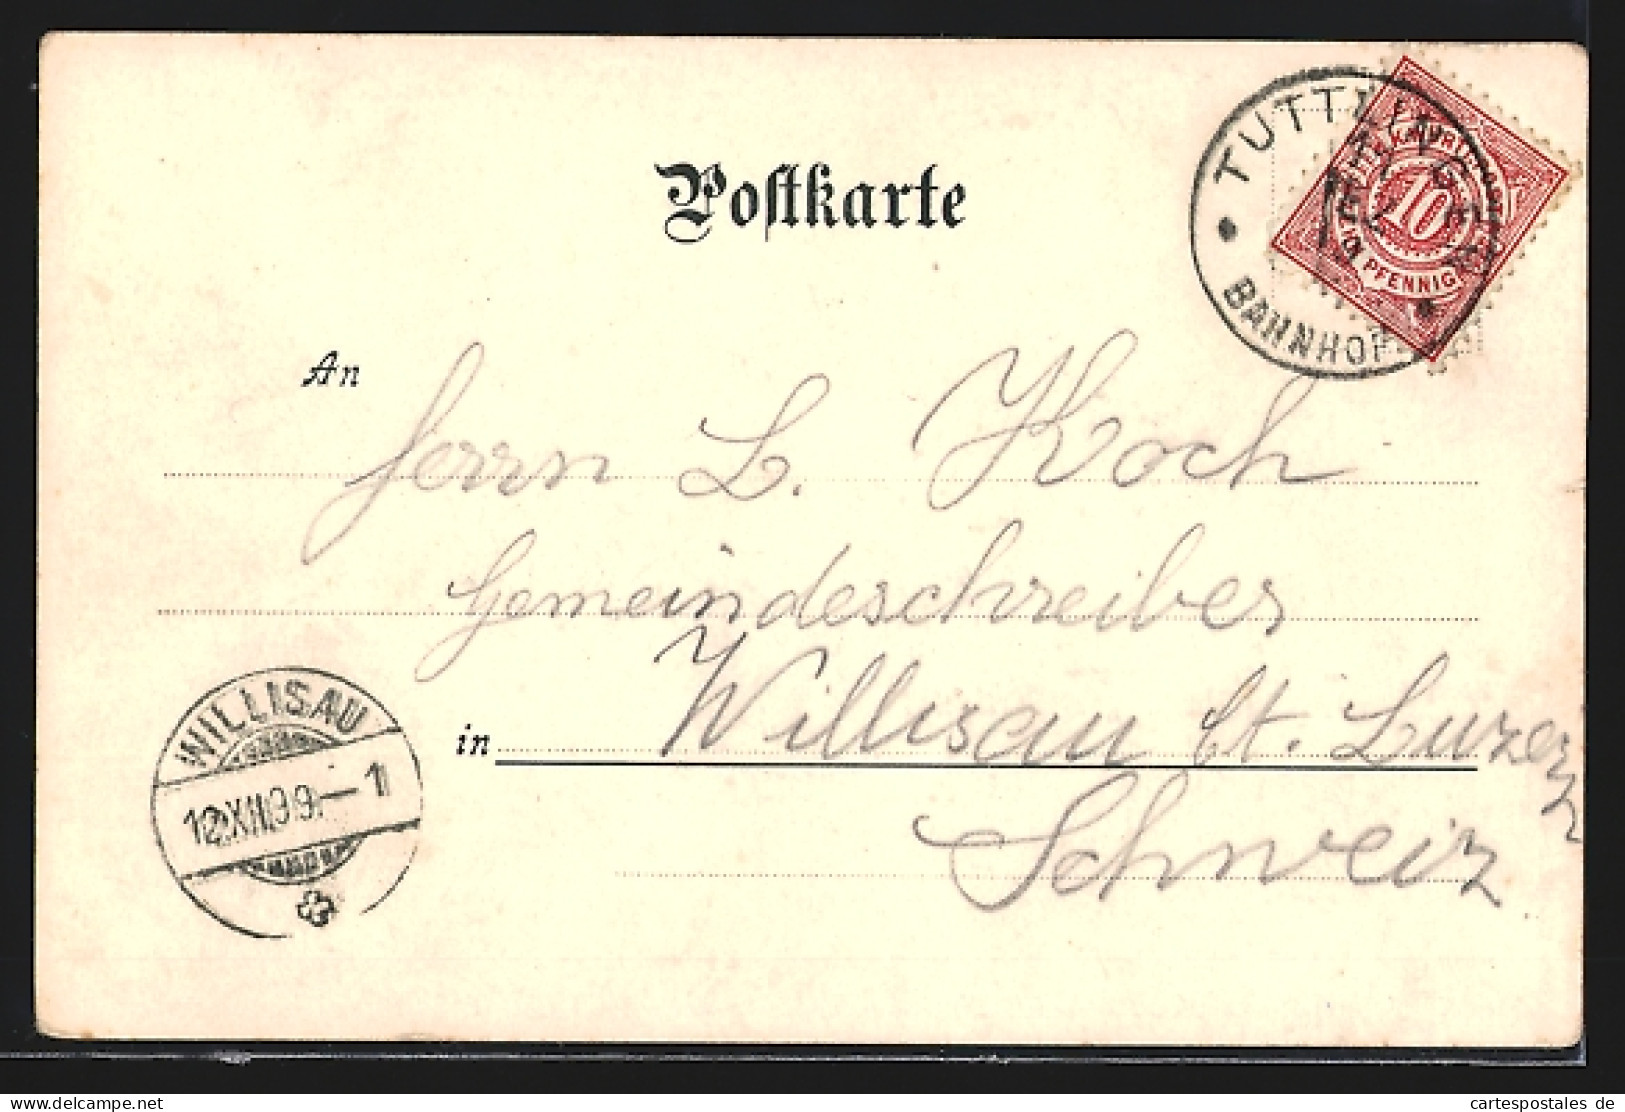 Postkarte
TUTTLINGEN
BAHNHOF
10
PFENNIG
An
Herrn L. Koch
Gemeindeschreiber
in Willisau Ct. Luzern
Schweiz
WILLISAU
12.XII.99.–1
www.delcampe.net
cartespostales de